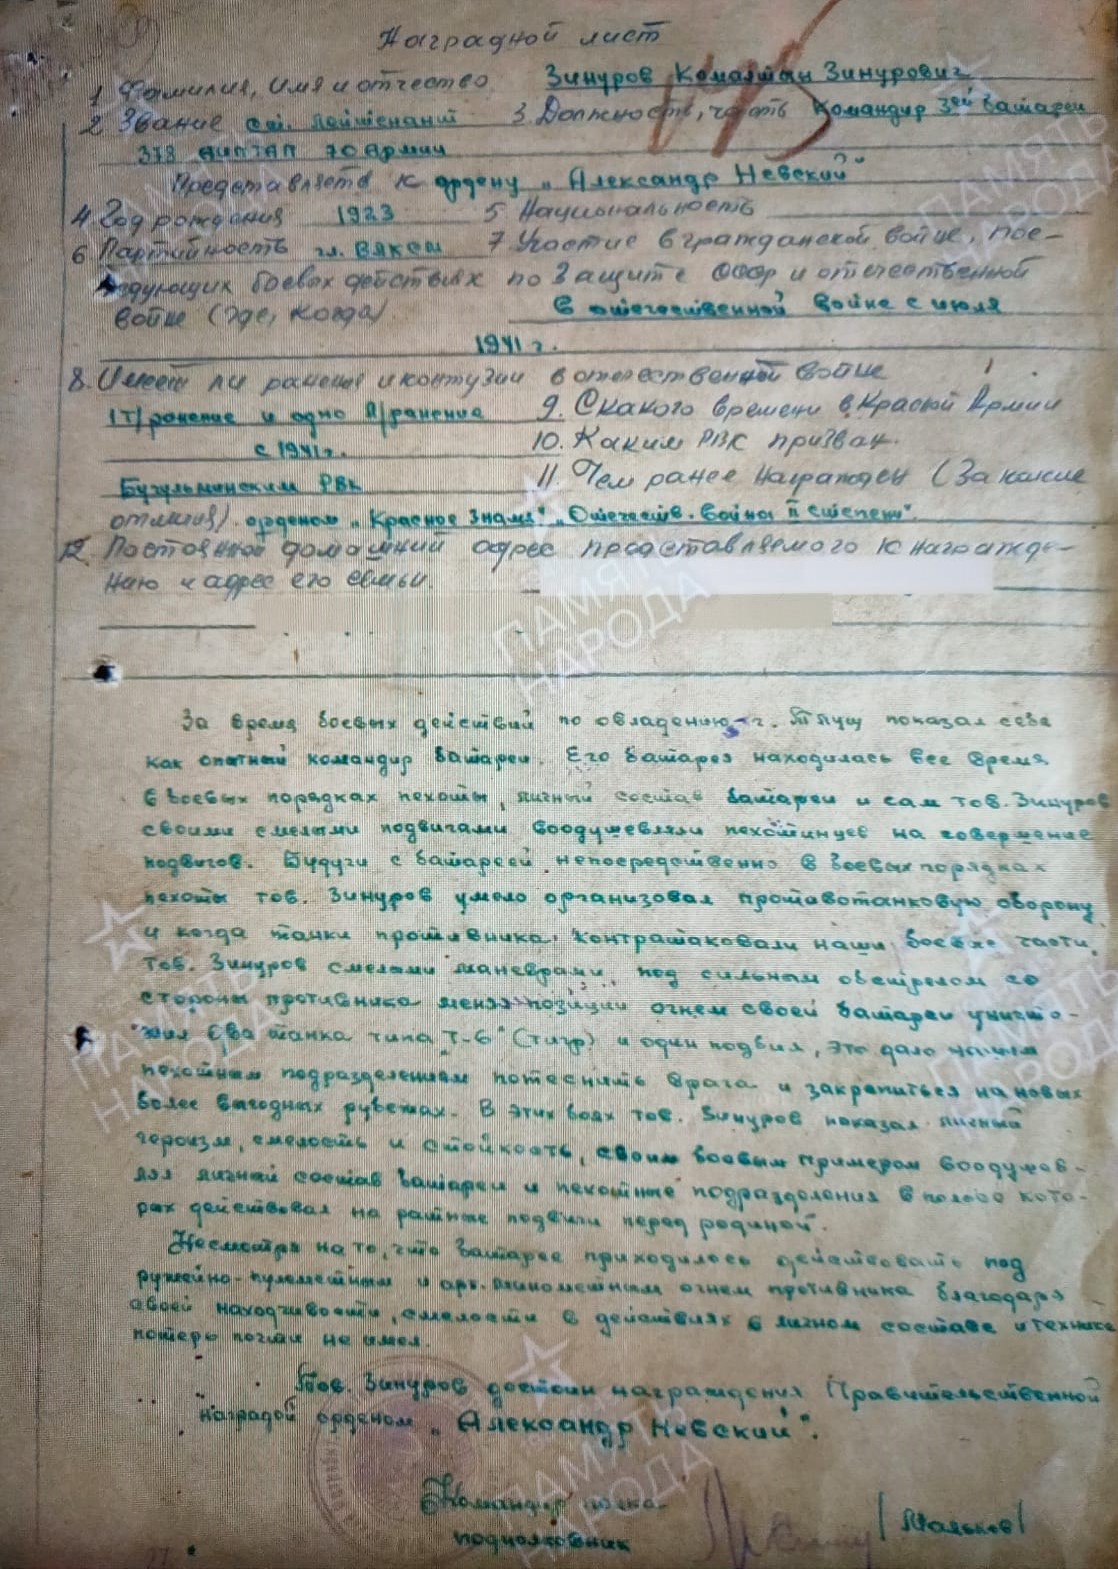 Наградной лист
1 Фамилия, имя и отчество Зинуров Комалтын Зинурович
2 Звание ст. лейтенант 3 Должность, часть Командир 3ей батареи
378 АИПТАП 70 Армии
Представляется к ордену „Александр Невский"
4 Год рождения 1923 5 Национальность
6 Партийность чл. ВЛКСМ 7 Участие в гражданской войне, пос-
ледующих боевых действиях по защите СССР и отечественной
войне (где, когда) в отечественной войне с июля
1941 г.
8. Имеет ли ранения и контузии в отечественной войне
1 т/ранение и одно л/ранение 9. С какого времени в Красной Армии
с 1941 г. 10. Каким РВК призван.
Бугульминским РВК 11. Чем ранее награжден (За какие
отличия). орденом „Красное Знамя", „Отечеств. война II степени".
12. Постоянный домашний адрес представляемого к награжде-
нию и адрес его семьи.
За время боевых действий по овладению г. показал себя
как опытный командир батареи. Его батарея находилась все время
в боевых порядках пехоты, личный состав батареи и сам тов. Зинуров
своими смелыми подвигами воодушевляли пехотинцев на совершение
подвигов. Будучи с батареей непосредственно в боевых порядках
пехоты тов. Зинуров умело организовал противотанковую оборону
и когда танки противника контратаковали наши боевые части,
тов. Зинуров смелыми маневрами, под сильным обстрелом со
стороны противника меняя позиции огнем своей батареи уничто-
жил два танка типа „Т-6" (тигр) и один подбил, это дало нашим
пехотным подразделениям потеснить врага и закрепиться на новых
более выгодных рубежах. В этих боях тов. Зинуров показал личный
героизм, смелость и стойкость, своим боевым примером воодушев-
лял личный состав батареи и пехотные подразделения в полосе кото-
рых действовал на ратные подвиги перед родиной.
Несмотря на то, что батарее приходилось действовать под
ружейно-пулеметным и арт. минометным огнем противника благодаря
своей находчивости, смелости в действиях в личном составе и технике
потерь почти не имел.
Тов. Зинуров достоин награждения Правительственной
наградой орденом „Александр Невский".
Командир полка
подполковник /Мальков/
ПАМЯТЬ НАРОДА
ПАМЯТЬ НАРОДА
ПАМЯТЬ НАРОДА
ПАМЯТЬ НАРОДА
ПАМЯТЬ НАРОДА
ПАМЯТЬ НАРОДА